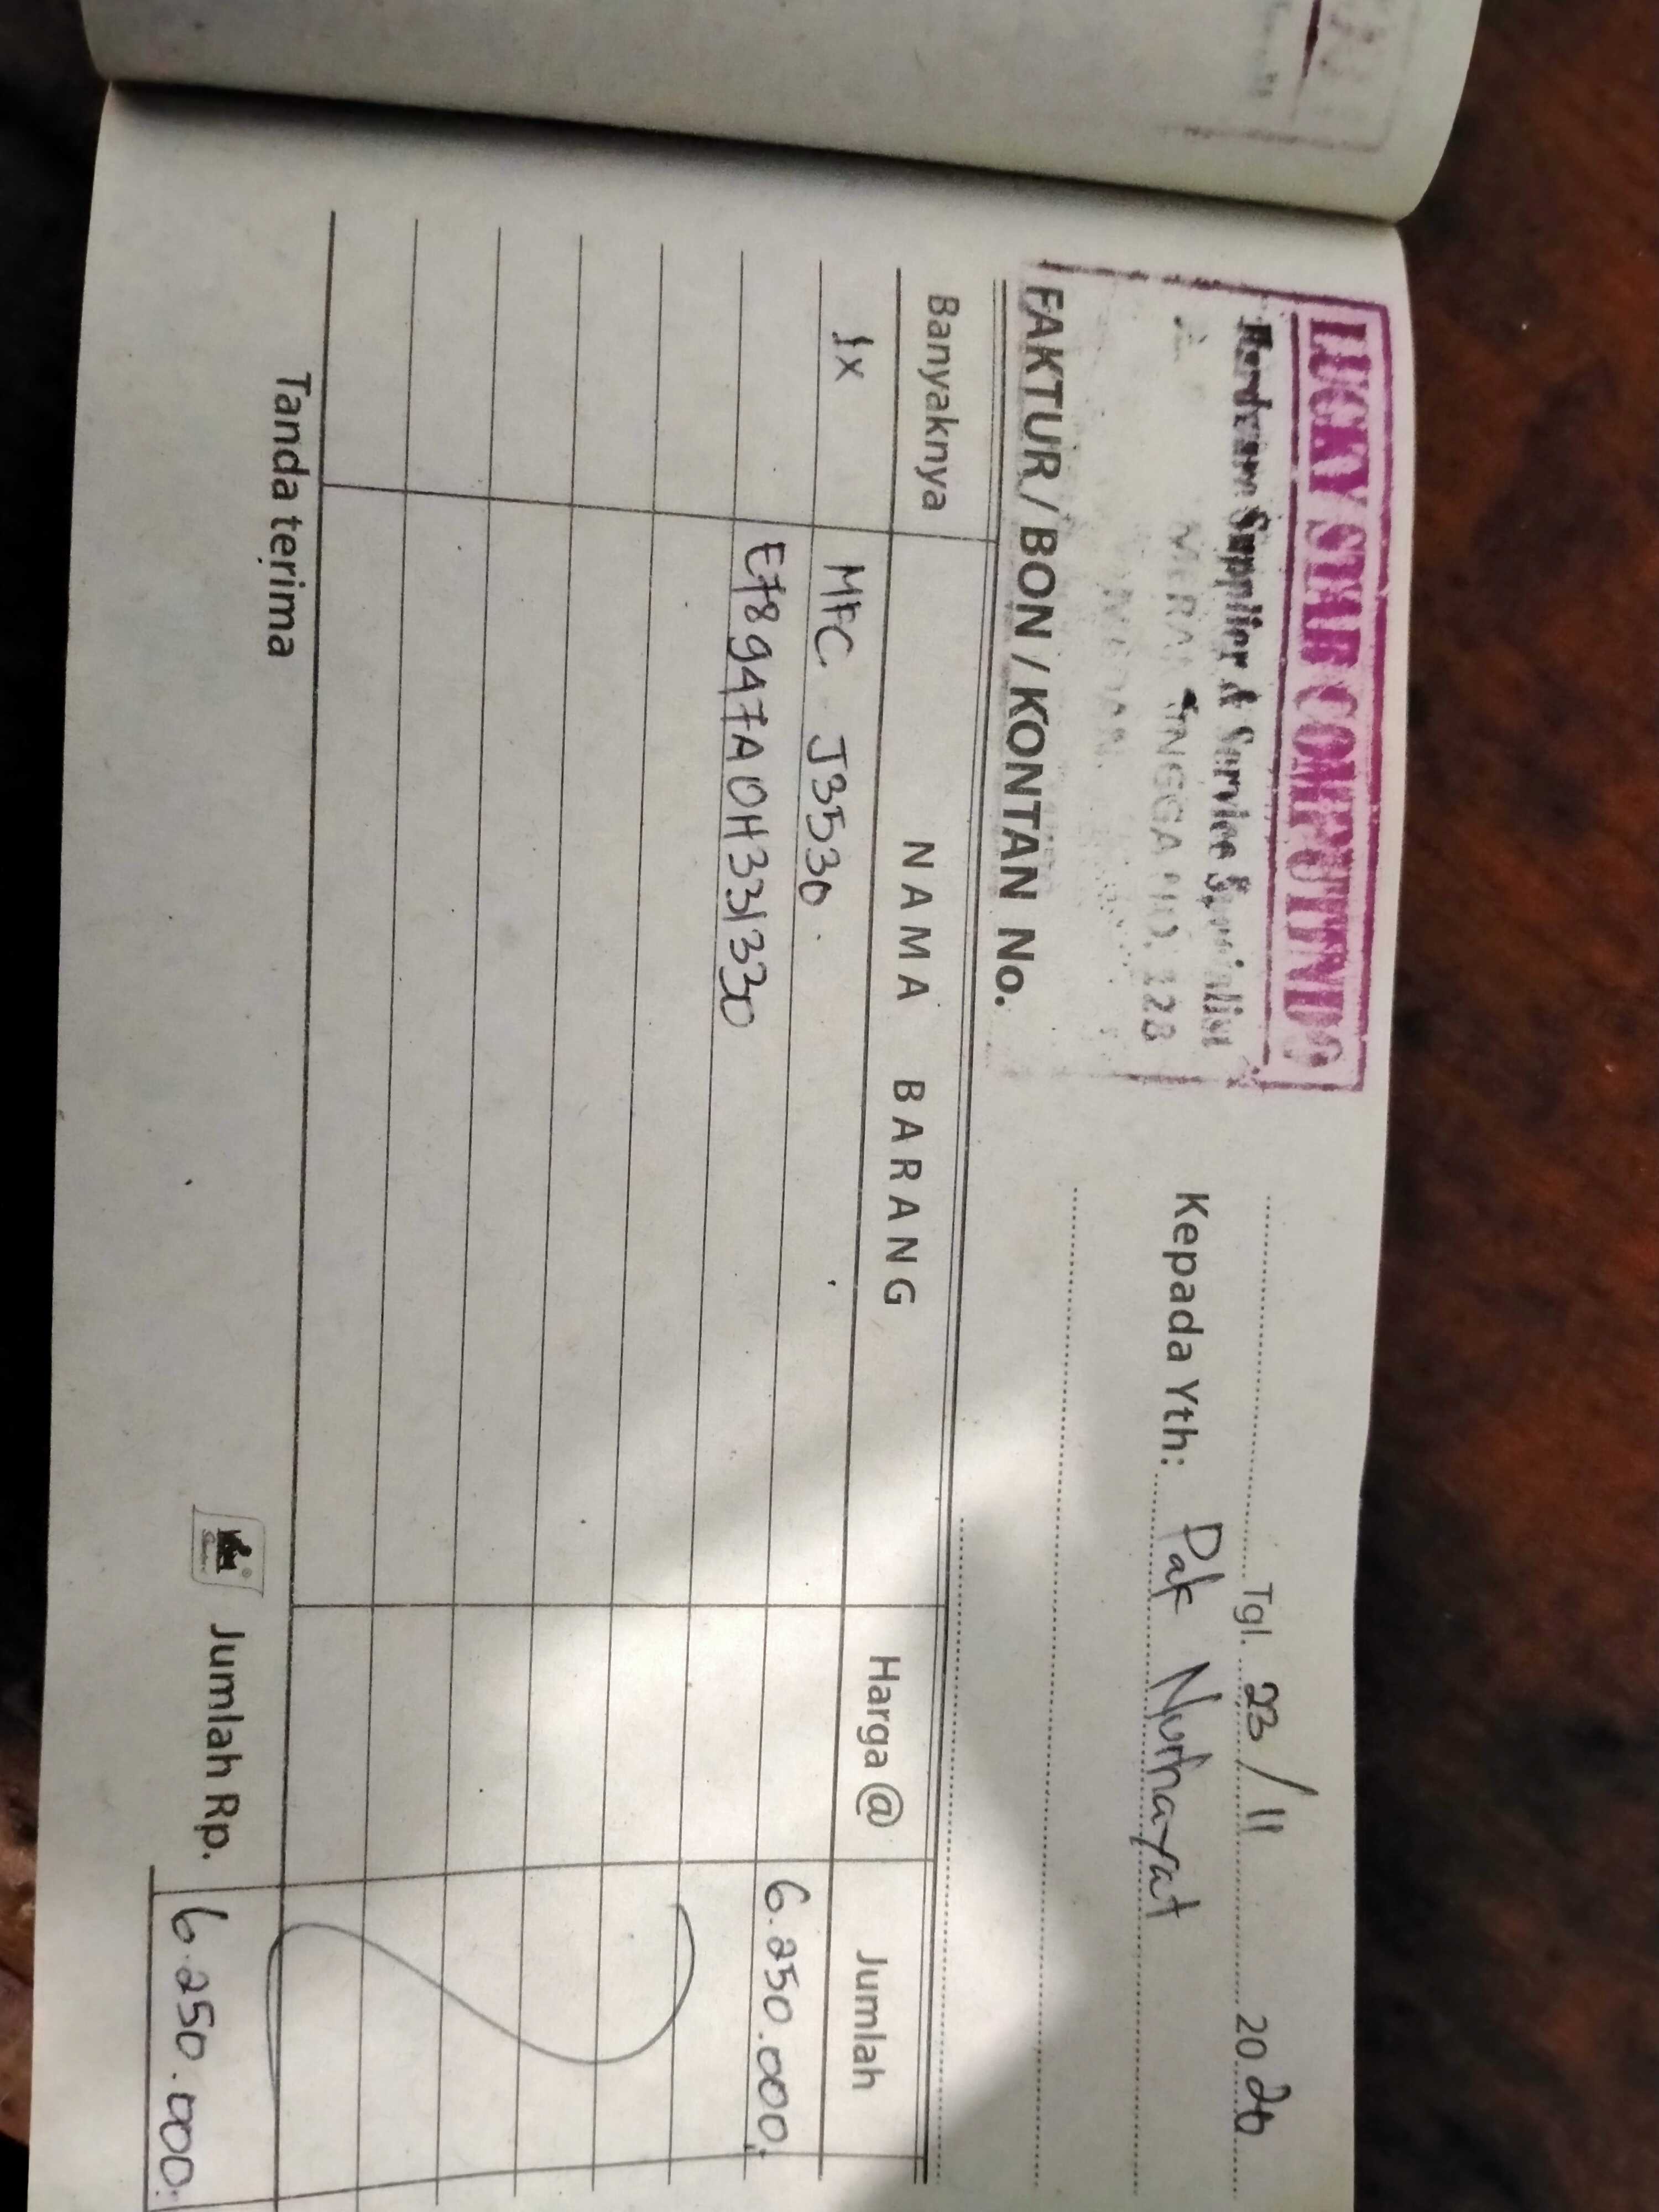 LUCKY STAR COMPUTINDO
Hardware Supplier & Service Specialist
128
Tgl. 23/11 2020
Kepada Yth: Pak Nurhayat
FAKTUR / BON / KONTAN No.
Banyaknya NAMA BARANG Harga @ Jumlah
1x MFC J3530. 6.250.000,-
E78947A0H331330
Tanda terima Jumlah Rp. 6.250.000,-